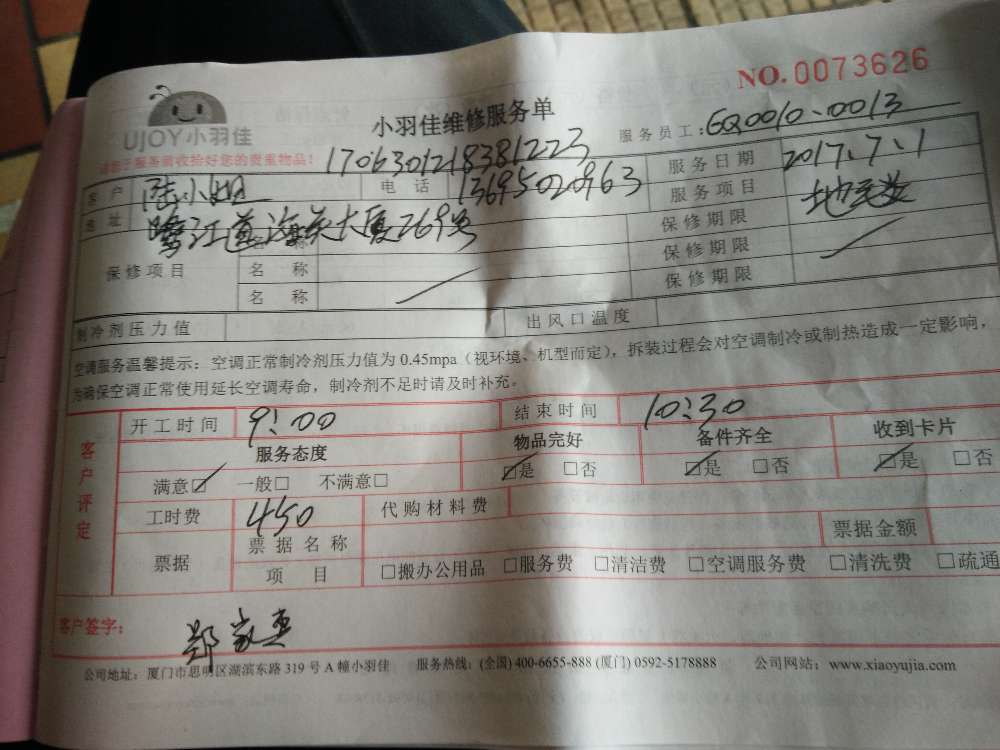 NO.0073626
UJOY小羽佳
小羽佳维修服务单
服务员工:GQ0010.0013
收拾好您的贵重物品!
170630121838122​3
客户 陆小姐 电话 13695020963 服务日期 2017.7.1
地址 鹭江道海关大厦269号 服务项目 地
保修项目 名称 保修期限
名称 保修期限
名称 保修期限
制冷剂压力值 出风口温度
空调服务温馨提示:空调正常制冷剂压力值为0.45mpa(视环境、机型而定),拆装过程会对空调制冷或制热造成一定影响,
为确保空调正常使用延长空调寿命,制冷剂不足时请及时补充。
客户评定
开工时间 9:00 结束时间 10:30
服务态度 物品完好 备件齐全 收到卡片
满意☑ 一般□ 不满意□ ☑是 □否 ☑是 □否 ☑是 □否
工时费 450 代购材料费
票据 票据名称 票据金额
项目 □搬办公用品 □服务费 □清洁费 □空调服务费 □清洗费 □疏通
客户签字: 郑家
公司地址:厦门市思明区湖滨东路319号A幢小羽佳 服务热线:(全国)400-6655-888(厦门)0592-5178888 公司网站:www.xiaoyujia.com